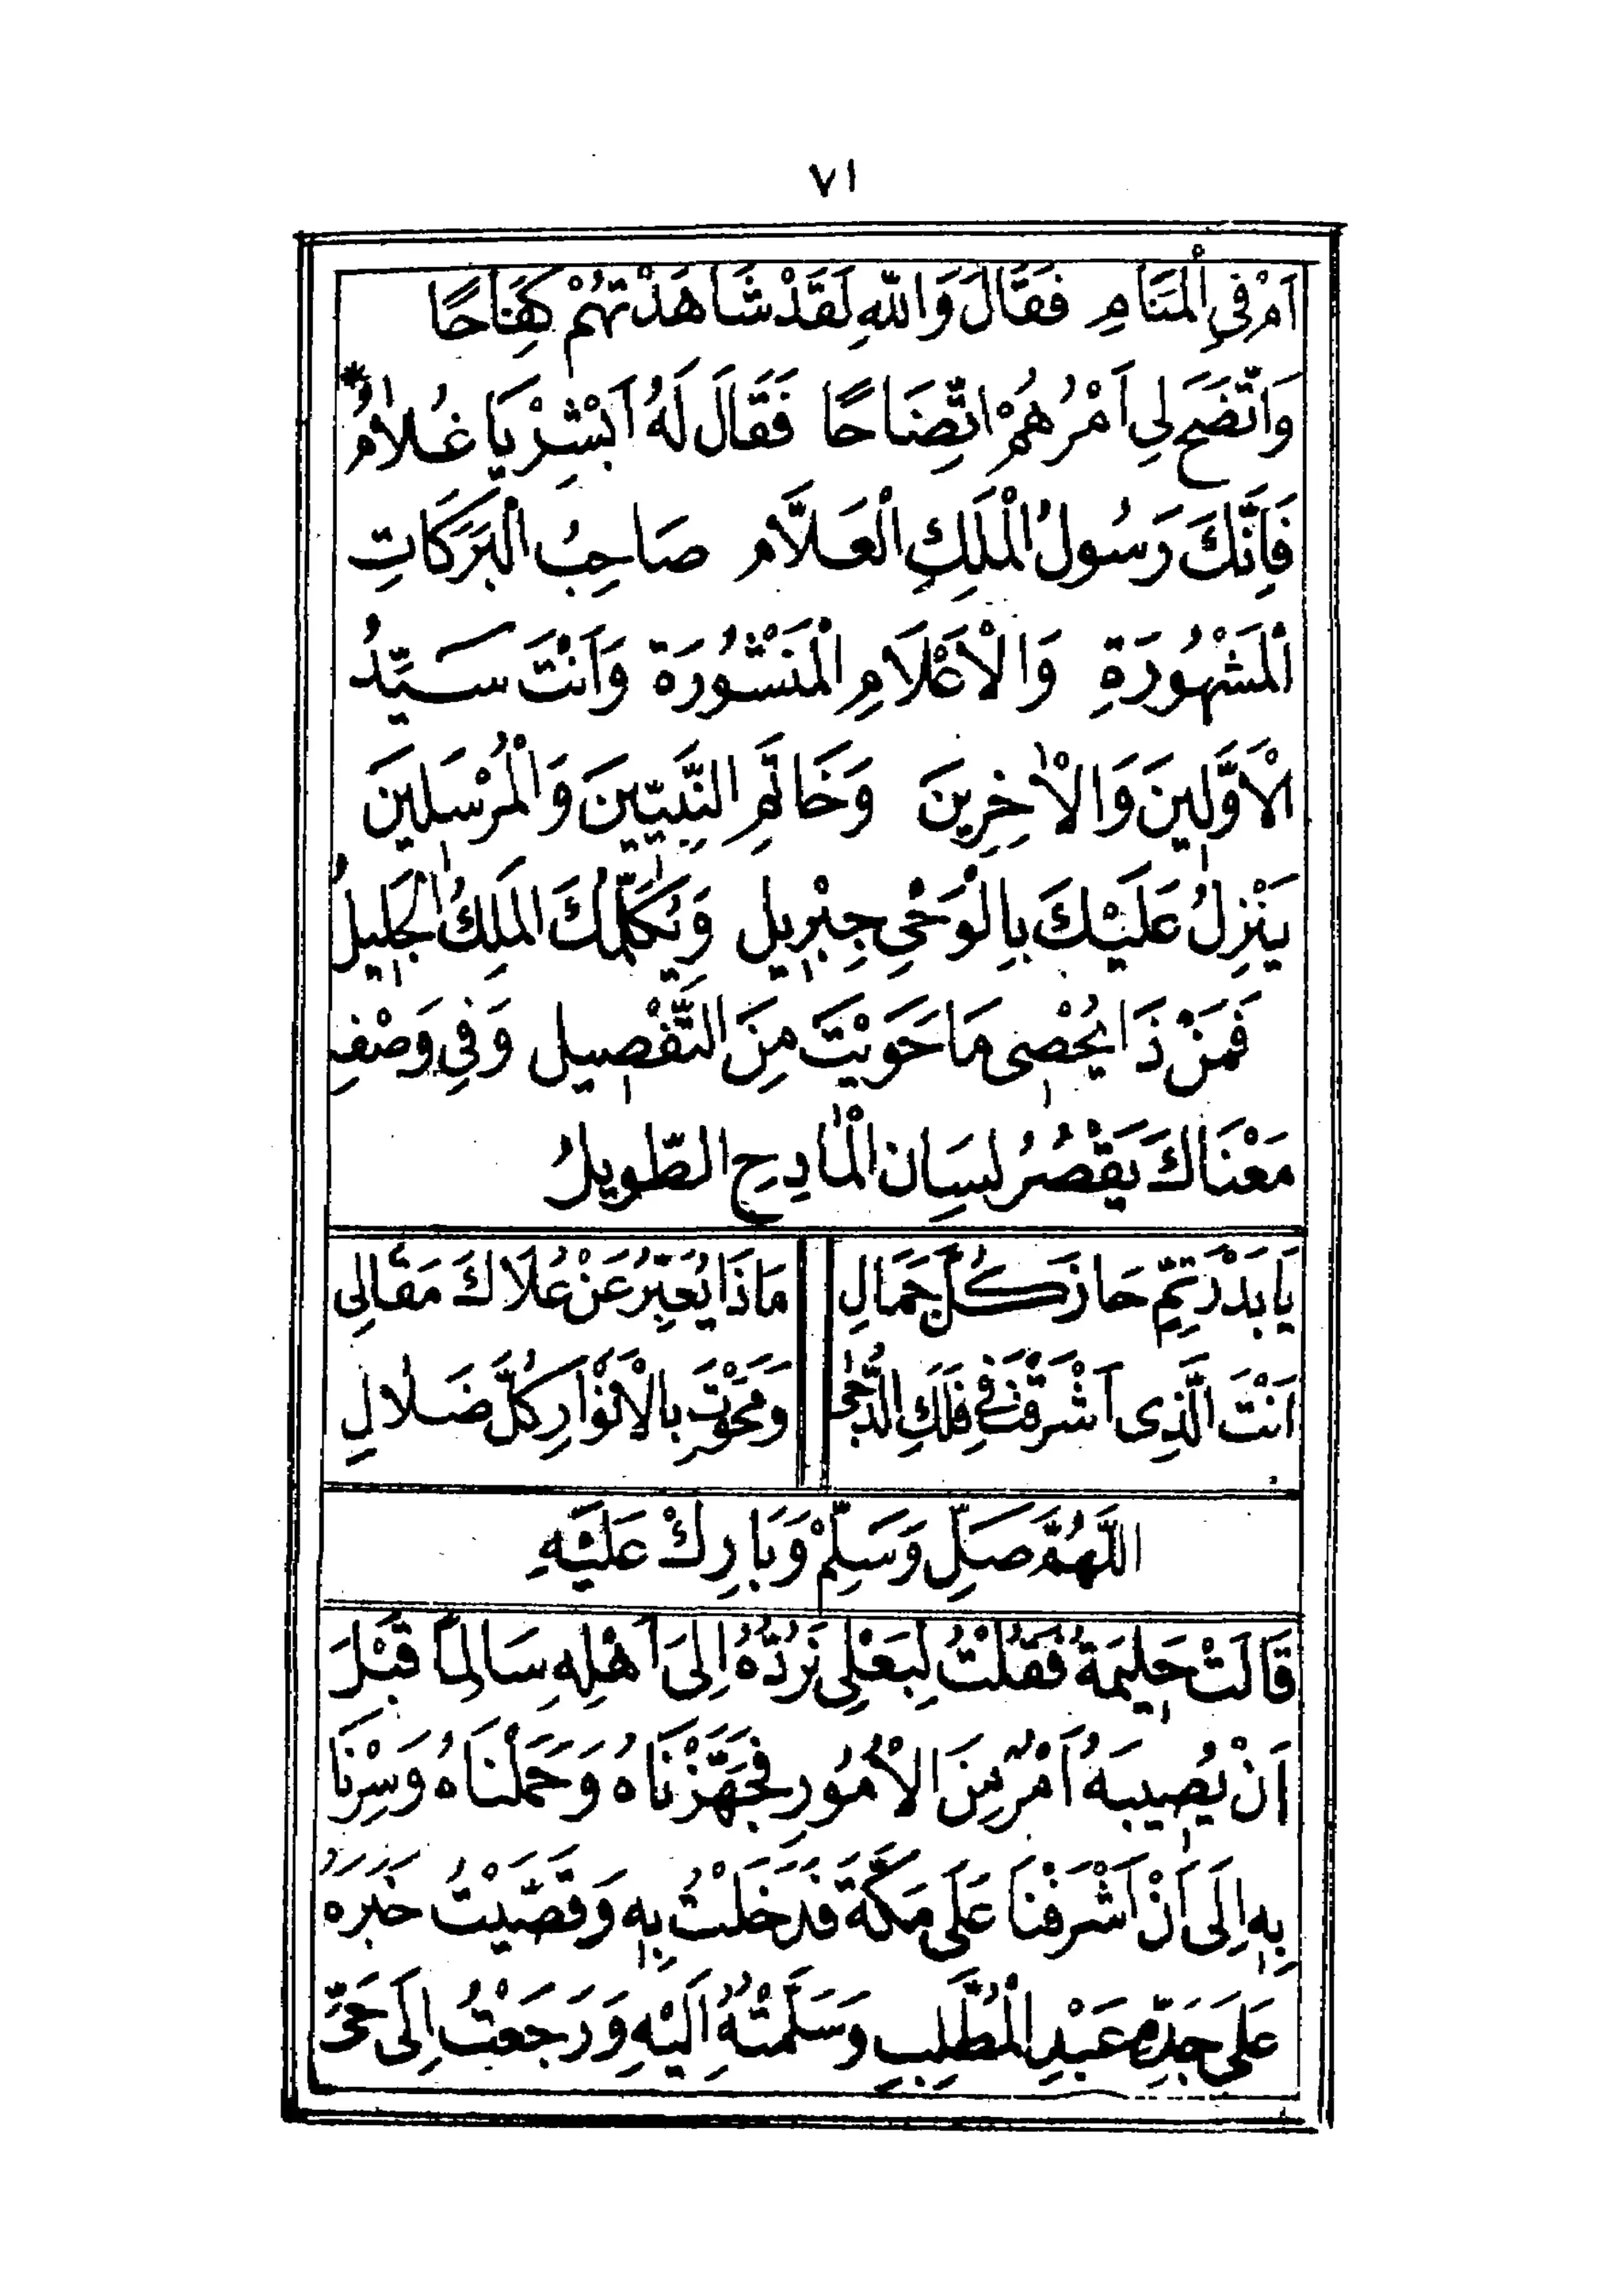 ٧١
اَمْ فِي الْمَنَامِ فَقَالَ وَاللهِ لَقَدْ شَاهَدْتُهُمْ كِفَاحًا
وَاتَّضَحَ لِي اَمْرُهُمْ اتِّضَاحًا فَقَالَ لَهُ اَبْشِرْ يَا غُلَامُ *
فَاِنَّكَ رَسُولُ الْمَلِكِ الْعَلَّامِ صَاحِبُ الْبَرَكَاتِ
الْمَشْهُورَةِ وَالْاَعْلَامِ الْمَنْشُورَةِ وَاَنْتَ سَيِّدُ
الْاَوَّلِينَ وَالْاٰخِرِينَ وَخَاتَمِ النَّبِيِّينَ وَالْمُرْسَلِينَ
يَنْزِلُ عَلَيْكَ بِالْوَحْيِ جِبْرِيلُ وَيُكَلِّمُكَ الْمَلِكُ الْجَلِيلُ
فَمَنْ ذَا يُحْصِى مَا حَوَيْتَ مِنَ التَّفْصِيلِ وَفِي وَصْفِ
مَعْنَاكَ يَقْصُرُ لِسَانُ الْمَادِحِ الطَّوِيلُ
يَا بَدْرَ تِمٍّ حَازَ كُلَّ جَمَالِ مَاذَا يُعَبِّرُ عَنْ عُلَاكَ مَقَالِى
اَنْتَ الَّذِى اَشْرَقْتَ فِي فَلَكِ الدُّجٰى وَمَحَوْتَ بِالْاَنْوَارِ كُلَّ ضَلَالِ
اللَّهُمَّ صَلِّ وَسَلِّمْ وَبَارِكْ عَلَيْهِ
قَالَتْ حَلِيمَةُ فَقُلْتُ لِبَعْلِي نَرُدُّهُ اِلَى اَهْلِهِ سَالِمًا قَبْلَ
اَنْ يُصِيبَهُ اَمْرٌ مِنَ الْاُمُورِ فَجَهَّزْنَاهُ وَحَمَلْنَاهُ وَسِرْنَا
بِهِ اِلَى اَنْ اَشْرَفْنَا عَلَى مَكَّةَ فَدَخَلْتُ بِهِ وَقَصَّيْتُ خَبَرَهُ
عَلَى جَدِّهِ عَبْدِ الْمُطَّلِبِ وَسَلَّمْتُهُ اِلَيْهِ وَرَجَعْتُ اِلَى حَيِّ